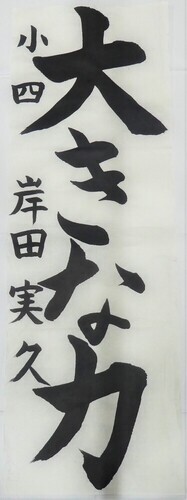 大きな力
小四 岸田実久